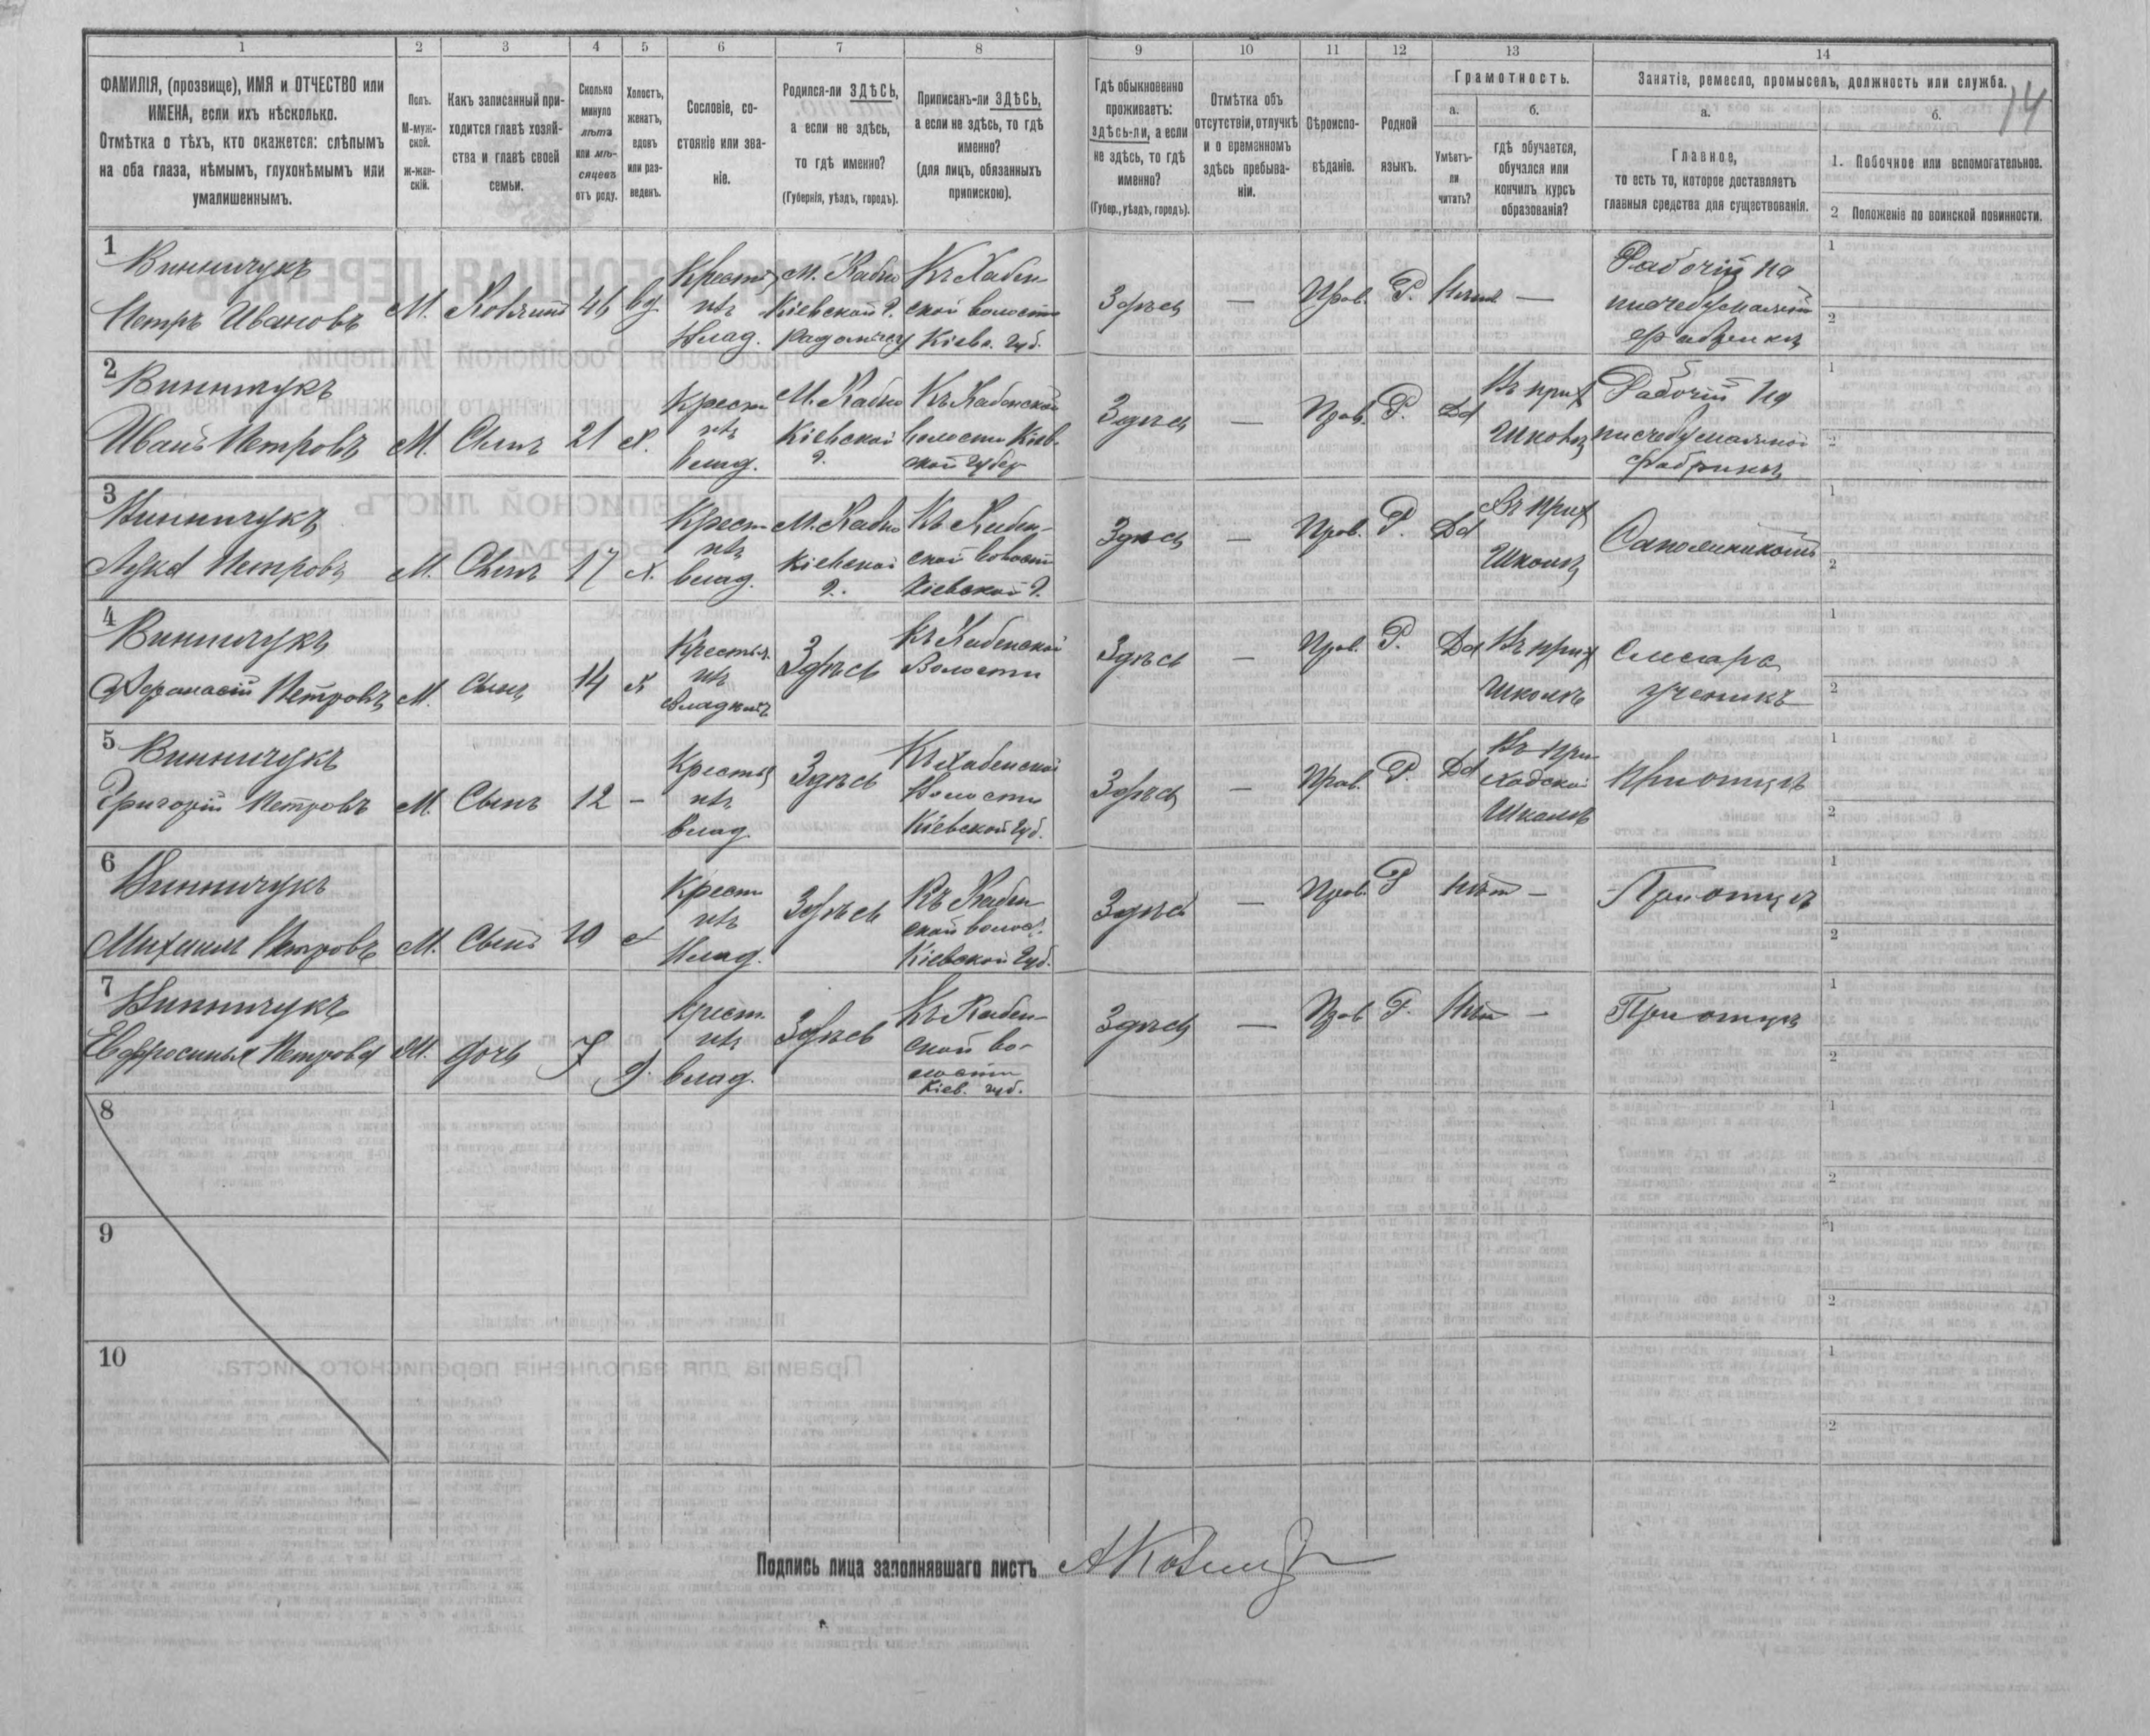 1
2
3
4
5
6
7
8
9
10
11
12
13
14
ФАМИЛІЯ, (прозвище), ИМЯ и ОТЧЕСТВО или
ИМЕНА, если ихъ нѣсколько.
Отмѣтка о тѣхъ, кто окажется: слѣпымъ
на оба глаза, нѣмымъ, глухонѣмымъ или
умалишеннымъ.
Полъ.
М-муж-
ской.
ж-жен-
скій.
Какъ записанный при-
ходится главѣ хозяй-
ства и главѣ своей
семьи.
Сколько
минуло
лѣтъ
или мѣ-
сяцевъ
отъ роду.
Холостъ,
женатъ,
вдовъ
или раз-
веденъ.
Сословіе, со-
стояніе или зва-
ніе.
Родился-ли ЗДѢСЬ,
а если не здѣсь,
то гдѣ именно?
(Губернія, уѣздъ, городъ).
Приписанъ-ли ЗДѢСЬ,
а если не здѣсь, то гдѣ
именно?
(для лицъ, обязанныхъ
припискою).
Гдѣ обыкновенно
проживаетъ:
здѣсь-ли, а если
не здѣсь, то гдѣ
именно?
(Губер., уѣздъ, городъ).
Отмѣтка объ
отсутствіи, отлучкѣ
и о временномъ
здѣсь пребыва-
ніи.
Вѣроиспо-
вѣданіе.
Родной
языкъ.
Грамотность.
а.
Умѣетъ-
ли
читать?
б.
гдѣ обучается,
обучался или
кончилъ курсъ
образованія?
Занятіе, ремесло, промыселъ, должность или служба.
14
а.
Главное,
то есть то, которое доставляетъ
главныя средства для существованія.
б.
1. Побочное или вспомогательное.
2 Положеніе по воинской повинности.
1
Винничукъ
Петръ Ивановъ
М.
46
вд
Крестья
нъ
Влад.
Кіевской г.
Къ Хабен-
ской волости
Кіевс. губ.
Здѣсь
—
Прав.
Р.
—
Рабочій на
писчебумажной
фабрики
1
2
2
Винничукъ
Иванъ Петровъ
М.
Сынъ
21
х.
Крест
нъ
влад.
Кіевской
г.
Къ Хабенской
волости Кіев-
ской губер
Здѣсь
—
Прав.
Р.
Да
Въ прих
Школѣ
Рабочій на
писчебумажной
фабрики
1
2
3
Винничукъ
Лука Петровъ
М.
Сынъ
17
х.
Крест
нъ
влад.
Кіевской
г.
Къ Хабен-
ской волост
Кіевской г.
Здѣсь
—
Прав.
Р.
Да
Въ прих
Школѣ
1
2
4
Винничукъ
Афанасій Петровъ
М.
Сынъ
14
х
Крестья
нъ
Здѣсь
Къ Хабенской
Волости
Здѣсь
—
Прав.
Р.
Да
Въ прих
Школѣ
Слесаръ
ученикъ
1
2
5
Винничукъ
Григорій Петровъ
М.
Сынъ
12
—
Крестья
нъ
влад.
Здѣсь
Къ Хабенской
Волости
Кіевской губ.
Здѣсь
—
Прав.
Р.
Да
Въ при-
ходской
Школѣ
При отцѣ
1
2
6
Винничукъ
Михаилъ Петровъ
М.
Сынъ
х
Крест
нъ
Влад.
Здѣсь
Къ Хабен-
ской волос.
Кіевской губ.
Здѣсь
—
Прав.
Р
Нѣт —
При отцѣ
1
2
7
Винничукъ
Евфросинья Петрова
М.
дочь
7
Д.
Крест.
нъ
влад.
Здѣсь
Къ Хабен-
ской во-
лости
Кіев. губ.
Здѣсь
—
Прав
Р.
Нѣт —
При отцѣ
1
2
8
1
2
9
1
2
10
1
2
Подпись лица заполнявшаго листъ